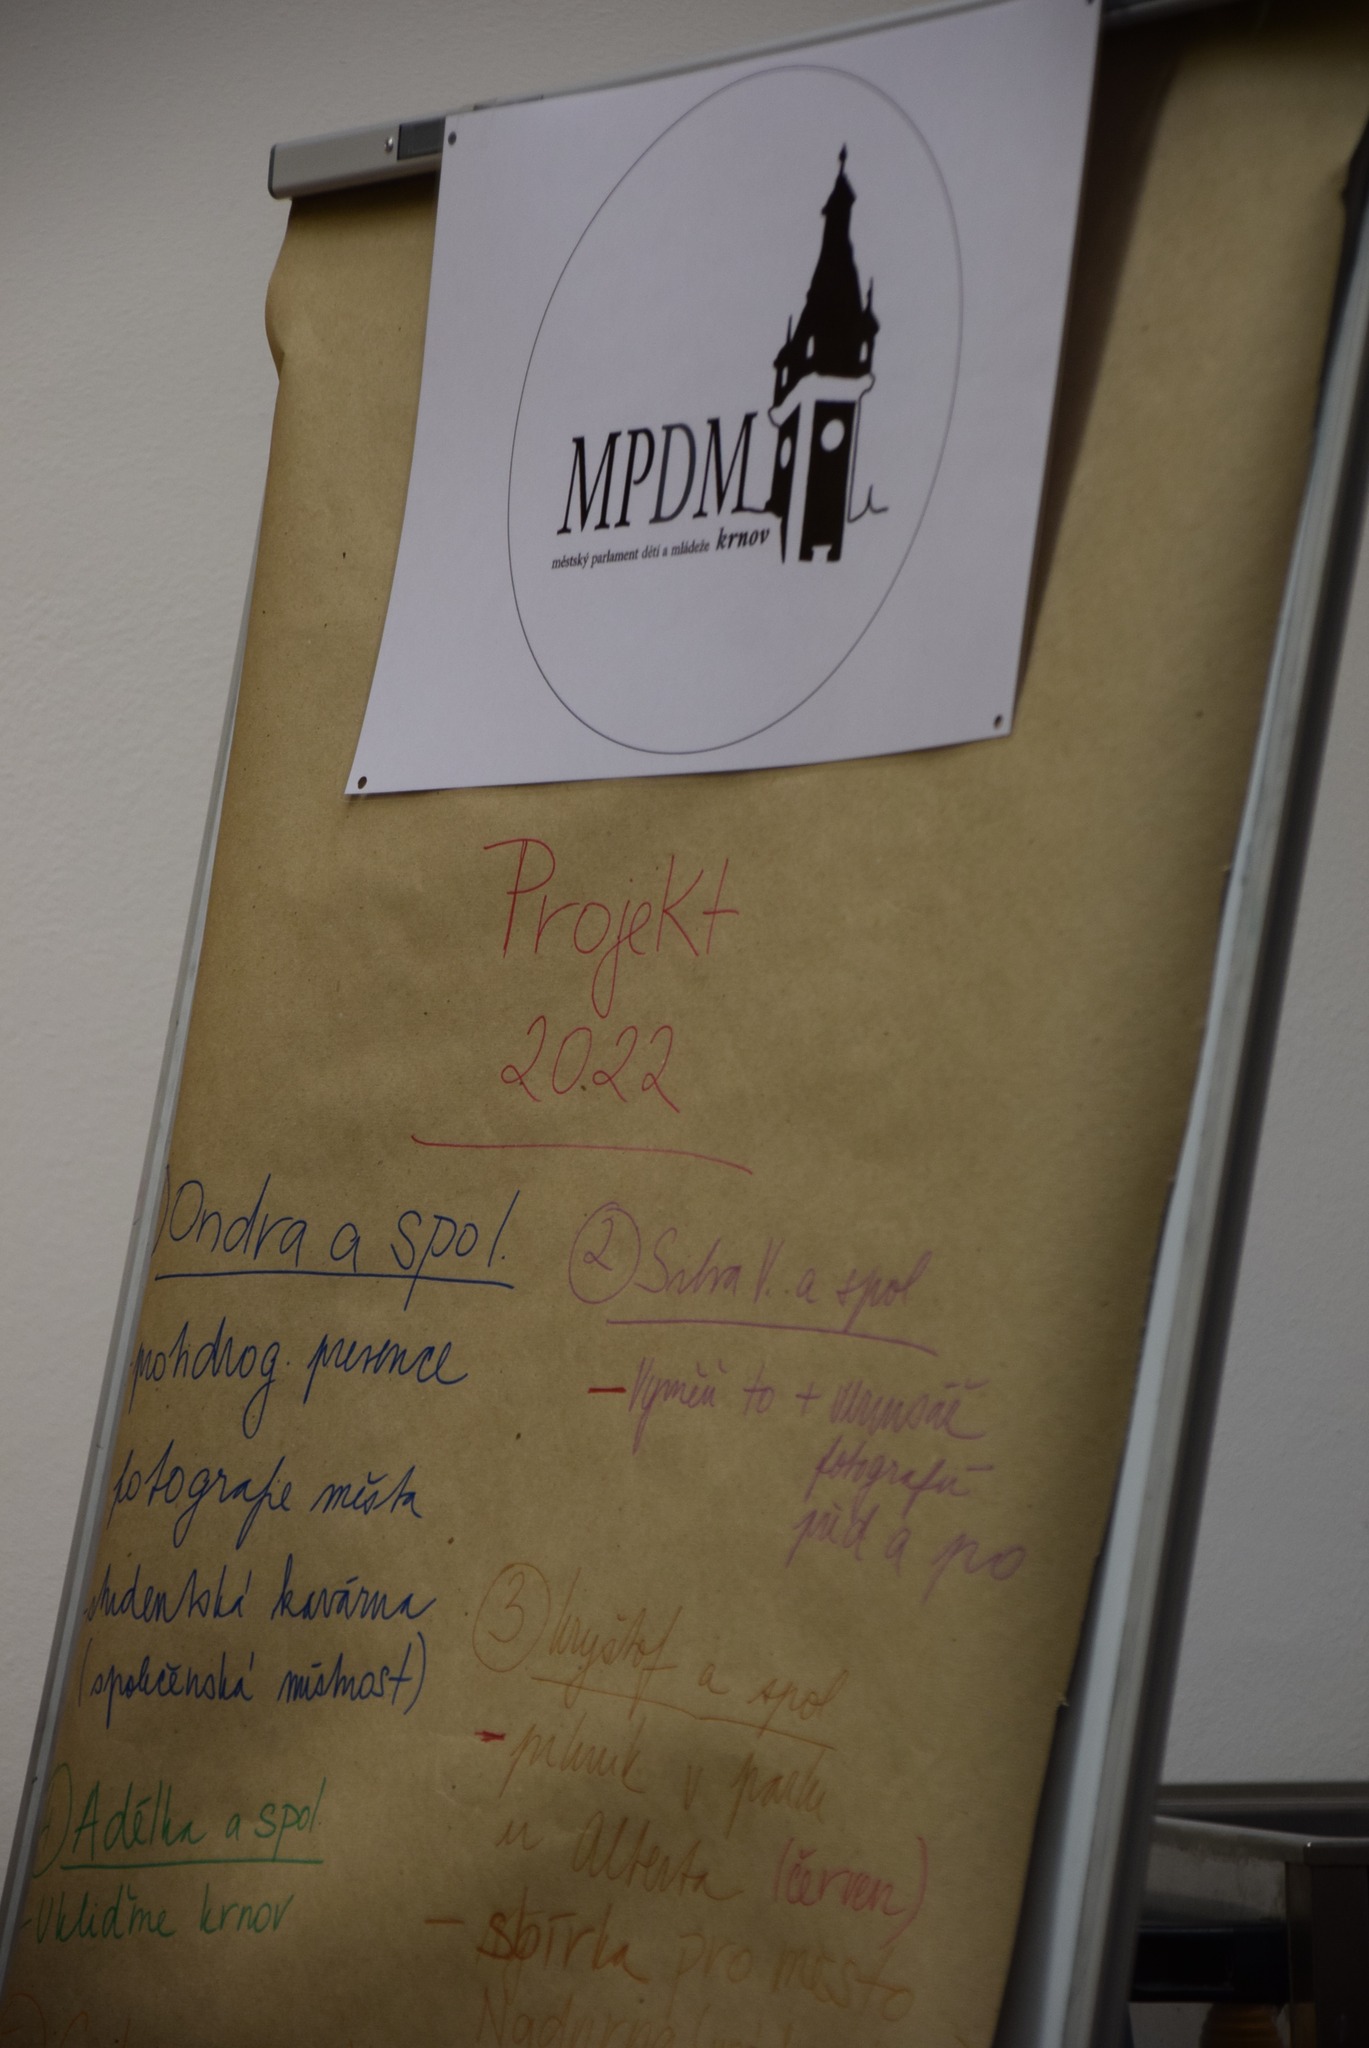 MPDM
městský parlament dětí a mládeže krnov
Projekt
2022
) Ondra a spol.
protidrog. presence
fotografie města
studentská kavárna
(společenská místnost)
) Adélka a spol.
- Ukliďme krnov
2 Silva V. a spol
- Vyměň to +
fotografií
před a po
3 Kryštof a spol
- piknik v parku
u Alberta (červen)
- sbírka pro město